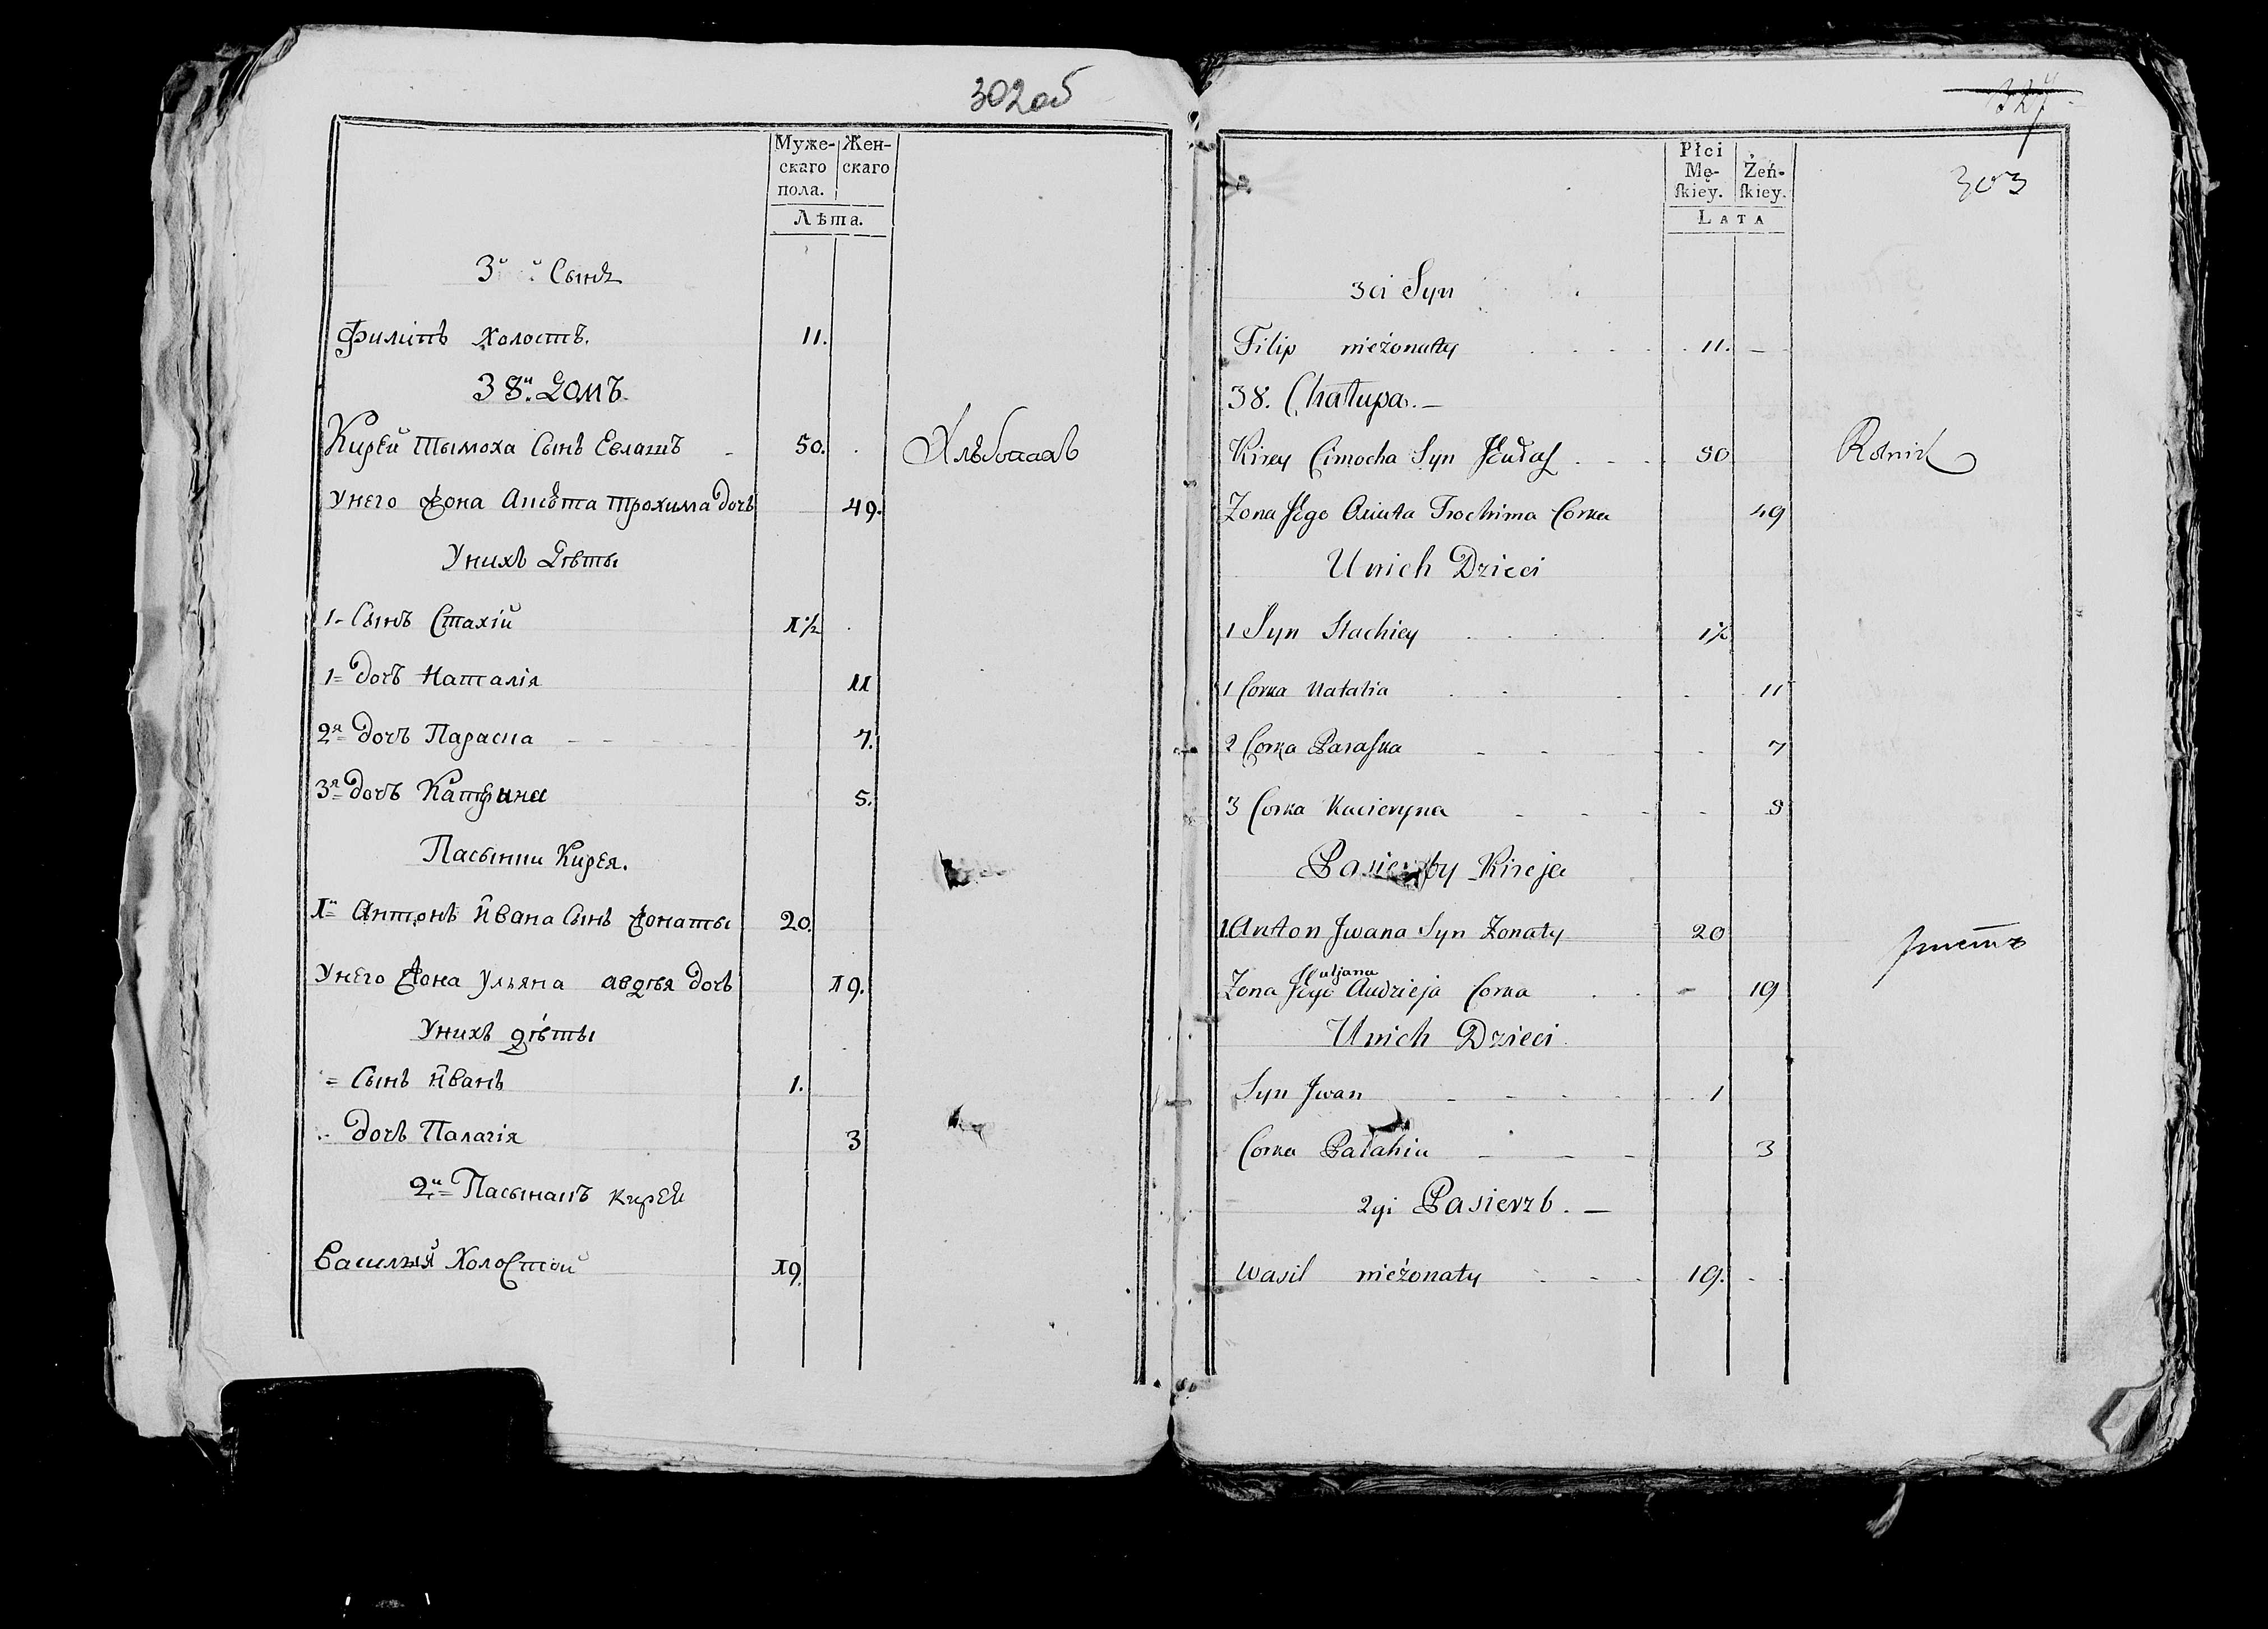 302 об
Муже-
скаго
пола.
Жен-
скаго
Лѣта.
3й Сынъ
Филипъ Холостъ. 11.
38й Домъ
Кирей Тымоха Сынъ Евлашъ 50. Хлѣбопашъ
Унего Жона Анюта Трохима Дочь 49.
Унихъ Дѣты
1 Сынъ Стахій 1½
1 дочь Наталія 11
2я дочь Параска 7.
3я дочь Катерина 5.
Пасынки Кирея.
1й Антонъ Ивана Сынъ Жонаты 20.
Унего Жона Ульяна Авдѣя Дочь 19.
Унихъ дѣты
Сынъ Иванъ 1.
дочь Палагія 3
2й Пасынакъ Кирея
Василій Холостой 19.
327
303
Płci
Mę-
ſkiey.
Żeń-
ſkiey.
LATA
3ci Syn
Filip nieżonaty 11. —
38. Chałupa. —
Kirey Cimocha Syn 50 Rolnik
Zona Jego Aniuta Trochima Corka 49
U nich Dzieci
1 Syn Stachiey 1½
1 Corka Natalia 11
2 Corka Paraſka 7
3 Corka Kacieryna 5
Pasierby Kireja
1 Anton Jwana Syn Zonaty 20
Zona Jego Huljana Audzieja Corka 19
U nich Dzieci
Syn Jwan 1
Corka Pałahia 3
2gi Pasierzb. —
Wasil nieżonaty 19.